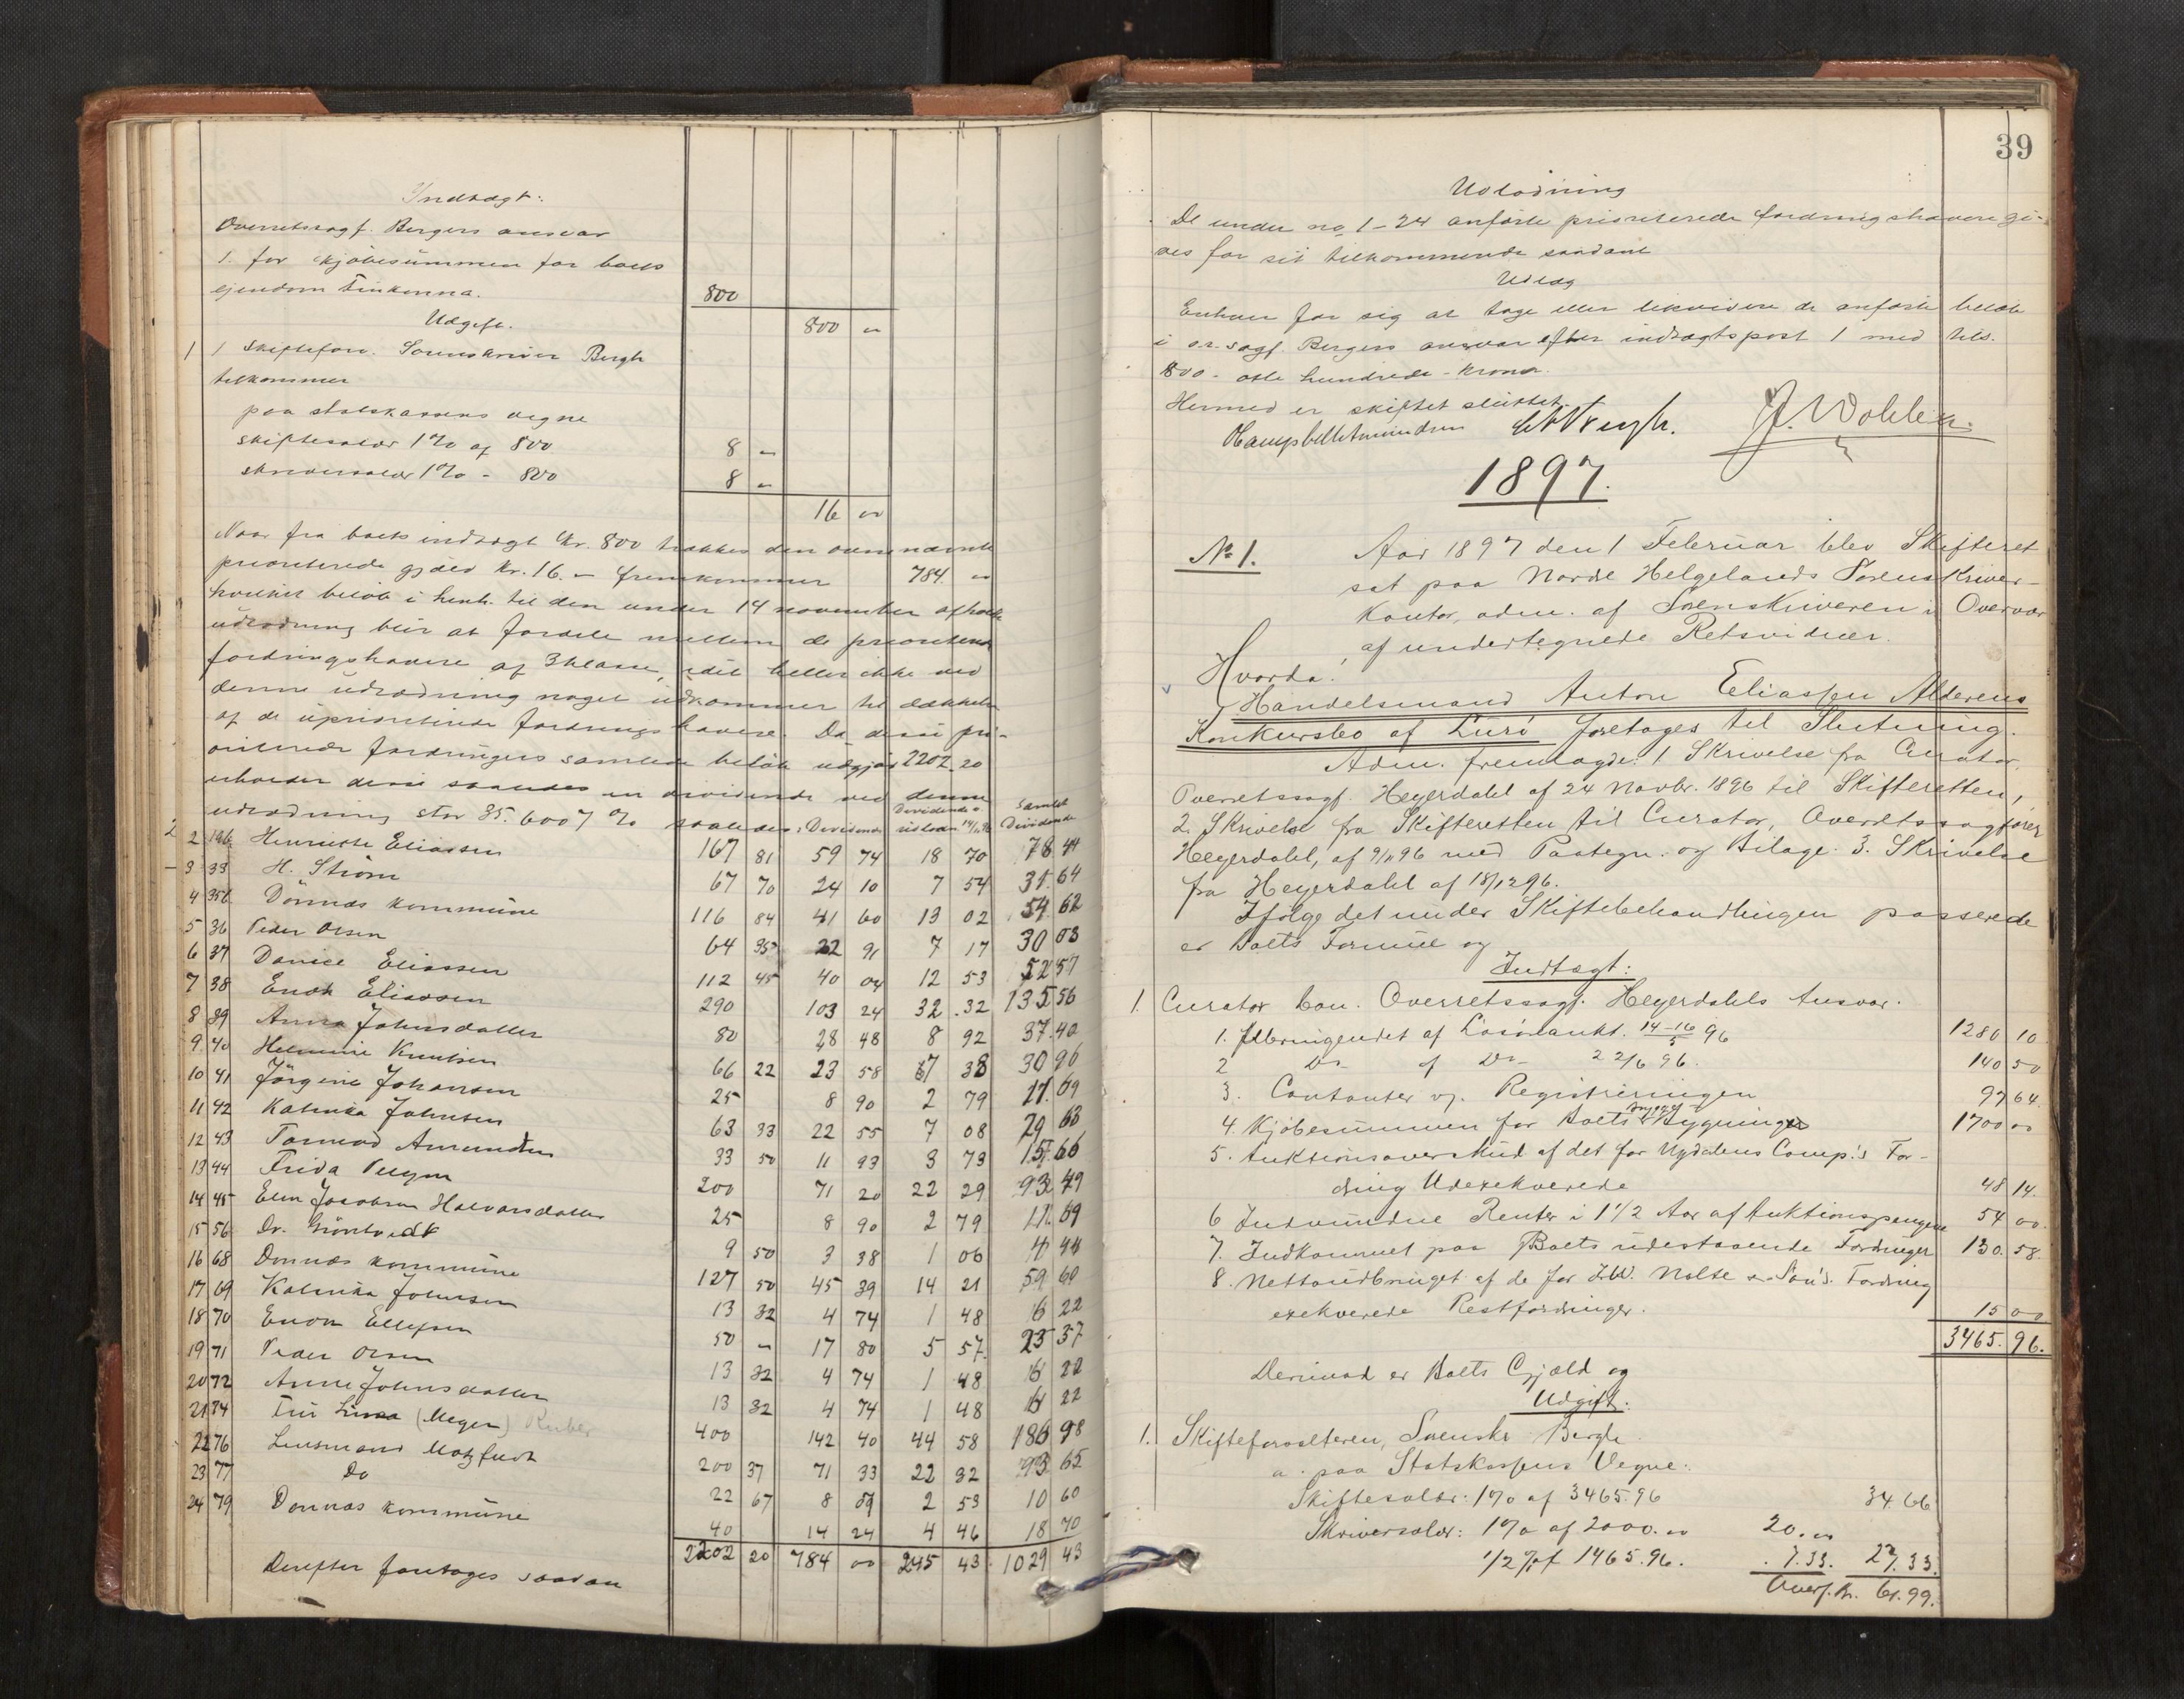 Indtægt:
Overretssagf. Bergers ansvar
1. for kjøbesummen for boets
ejendom Finkonna. 800
800 "
Udgift.
1 1 Skifteforv. Sorenskriver Bergh
tilkommer
paa statskassens vegne
skiftesalær 1% af 800 8 "
skriversalær 1% - 800 8 "
16 "
Naar fra boets indtægt Kr. 800 trækkes den ovennævnte
prioriterede gjæld Kr. 16.- fremkommer 784 "
hvilket beløb i henh. til den under 14 november afholdte
udlodning blir at fordele mellem de prioriterede
fordringshavere af 3 klasse, idet heller ikke ved
denne udlodning noget udkommer til dækkelse
af de uprioriterede fordringshavere. Da disse pri-
oriterede fordringers samlede beløb udgjør 2202 20
erholder disse saaledes en dividende ved denne
udlodning stor 35.6007 % saaledes: Dividende Dividende v. udlodn. 14/11 96 Samlet Dividende
2 Henriette Eliassen 167 81 59 74 18 70 78 44
3 33 H. Strøm 67 70 24 10 7 54 31 64
4 35b Dönnæs kommune 116 84 41 60 13 02 54 62
5 36 Peder Olsen 64 35 22 91 7 17 30 08
6 37 Daniel Eliassen 112 45 40 04 12 53 52 57
7 38 Enok Eliassen 290 103 24 32 32 135 56
8 39 Anna Johnsdatter 80 28 48 8 92 37 40
9 40 Helmine Knutsen 66 22 23 58 7 38 30 96
10 41 Jörgine Johansen 25 8 90 2 79 11 69
11 42 Katinka Johnsen 63 33 22 55 7 08 29 63
12 43 Tormod Amundsen 33 50 11 93 3 73 15 66
13 44 Frida 200 71 20 22 29 93 49
14 45 Elen Jacobine Halvorsdatter 25 8 90 2 79 11 69
15 56 Dr. Gröntvedt 9 50 3 38 1 06 4 44
16 68 Donnæs kommune 127 50 45 39 14 21 59 60
17 69 Katinka Johnsen 13 32 4 74 1 48 6 22
18 70 Enok Ellefsen 50 " 17 80 5 57 23 37
19 71 Peder Olsen 13 32 4 74 1 48 6 22
20 72 Anne Johnsdatter 13 32 4 74 1 48 6 22
21 74 (Meyer) 400 142 40 44 58 186 98
22 76 Lensmand Motzfeldt 200 37 71 33 22 32 93 65
23 77 Do 22 67 8 07 2 53 10 60
24 79 Donnæs kommune 40 14 24 4 46 18 70
2202 20 784 00 245 43 1029 43
Derefter foretages saadan
39
Udlodning
De under no 1-24 anførte prioriterede fordringshavere gi-
ves for sit tilkommende saadant
Udlæg
Enhver for sig at tage eller likvidere de anførte beløb
i o.r.sagf. Bergers ansvar efter indtægtspost 1 med tils.
800 - otte hundrede - kroner.
Hermed er skiftet sluttet.
J. Wohlen.
1897.
No 1. Aar 1897 den 1 Februar blev Skifteret
sat paa Nordre Helgelands Sorenskriver-
kontor, adm. af Sorenskriveren i Overvær
af undertegnede Retsvidner.
Hvorda:
Handelsmand Anton Eliassen Alderens
Konkursbo af Lurö foretages til Slutning.
Adm. fremlagde: 1 Skrivelse fra Curator,
Overretssagf. Heyerdahl af 24 Novbr. 1896 til Skifteretten,
2. Skrivelse fra Skifteretten til Curator, Overretssagfører
Heyerdahl, af 9/11 96 med Paategn. og Bilage. 3. Skrivelse
fra Heyerdahl af 18/12 96.
Ifølge det under Skiftebehandlingen passerede
er Boets Formue og
Indtægt:
1. Curator bon. Overretssagf. Heyerdahls Ansvar.
1. Udbringendet af Løsøreaukt. 14-16/5 96 1280 10
2 Do af Do 22/6 96. 140 50
3. Contanter v. Registreringen 97 64
4. Kjøbesummen for Boets Bygning 1700 00
5. Auktionsoverskud af det for Nydalens Comp.'s For-
dring Udexekverede 48 14.
6 Indvundne Renter i 1 1/2 Aar af Auktionspengene 54 00.
7. Indkommet paa Boets udestaaende Fordringer 130. 58.
8. Nettoudbringet af de for J.W. Nolte & Søn's Fordring
exekverede Restfordringer. 15 00
3465. 96.
Derimod er Boets Gjæld og
Udgift:
1. Skifteforvalteren, Sorenskr Bergh
a. paa Statskassens Vegne:
Skiftesalær: 1% af 3465.96 34.66
Skriversalær: 1% af 2000.00 20.00
1/2 % af 1465.96. 7.33. 27.33.
Overf. Kr. 61.99.